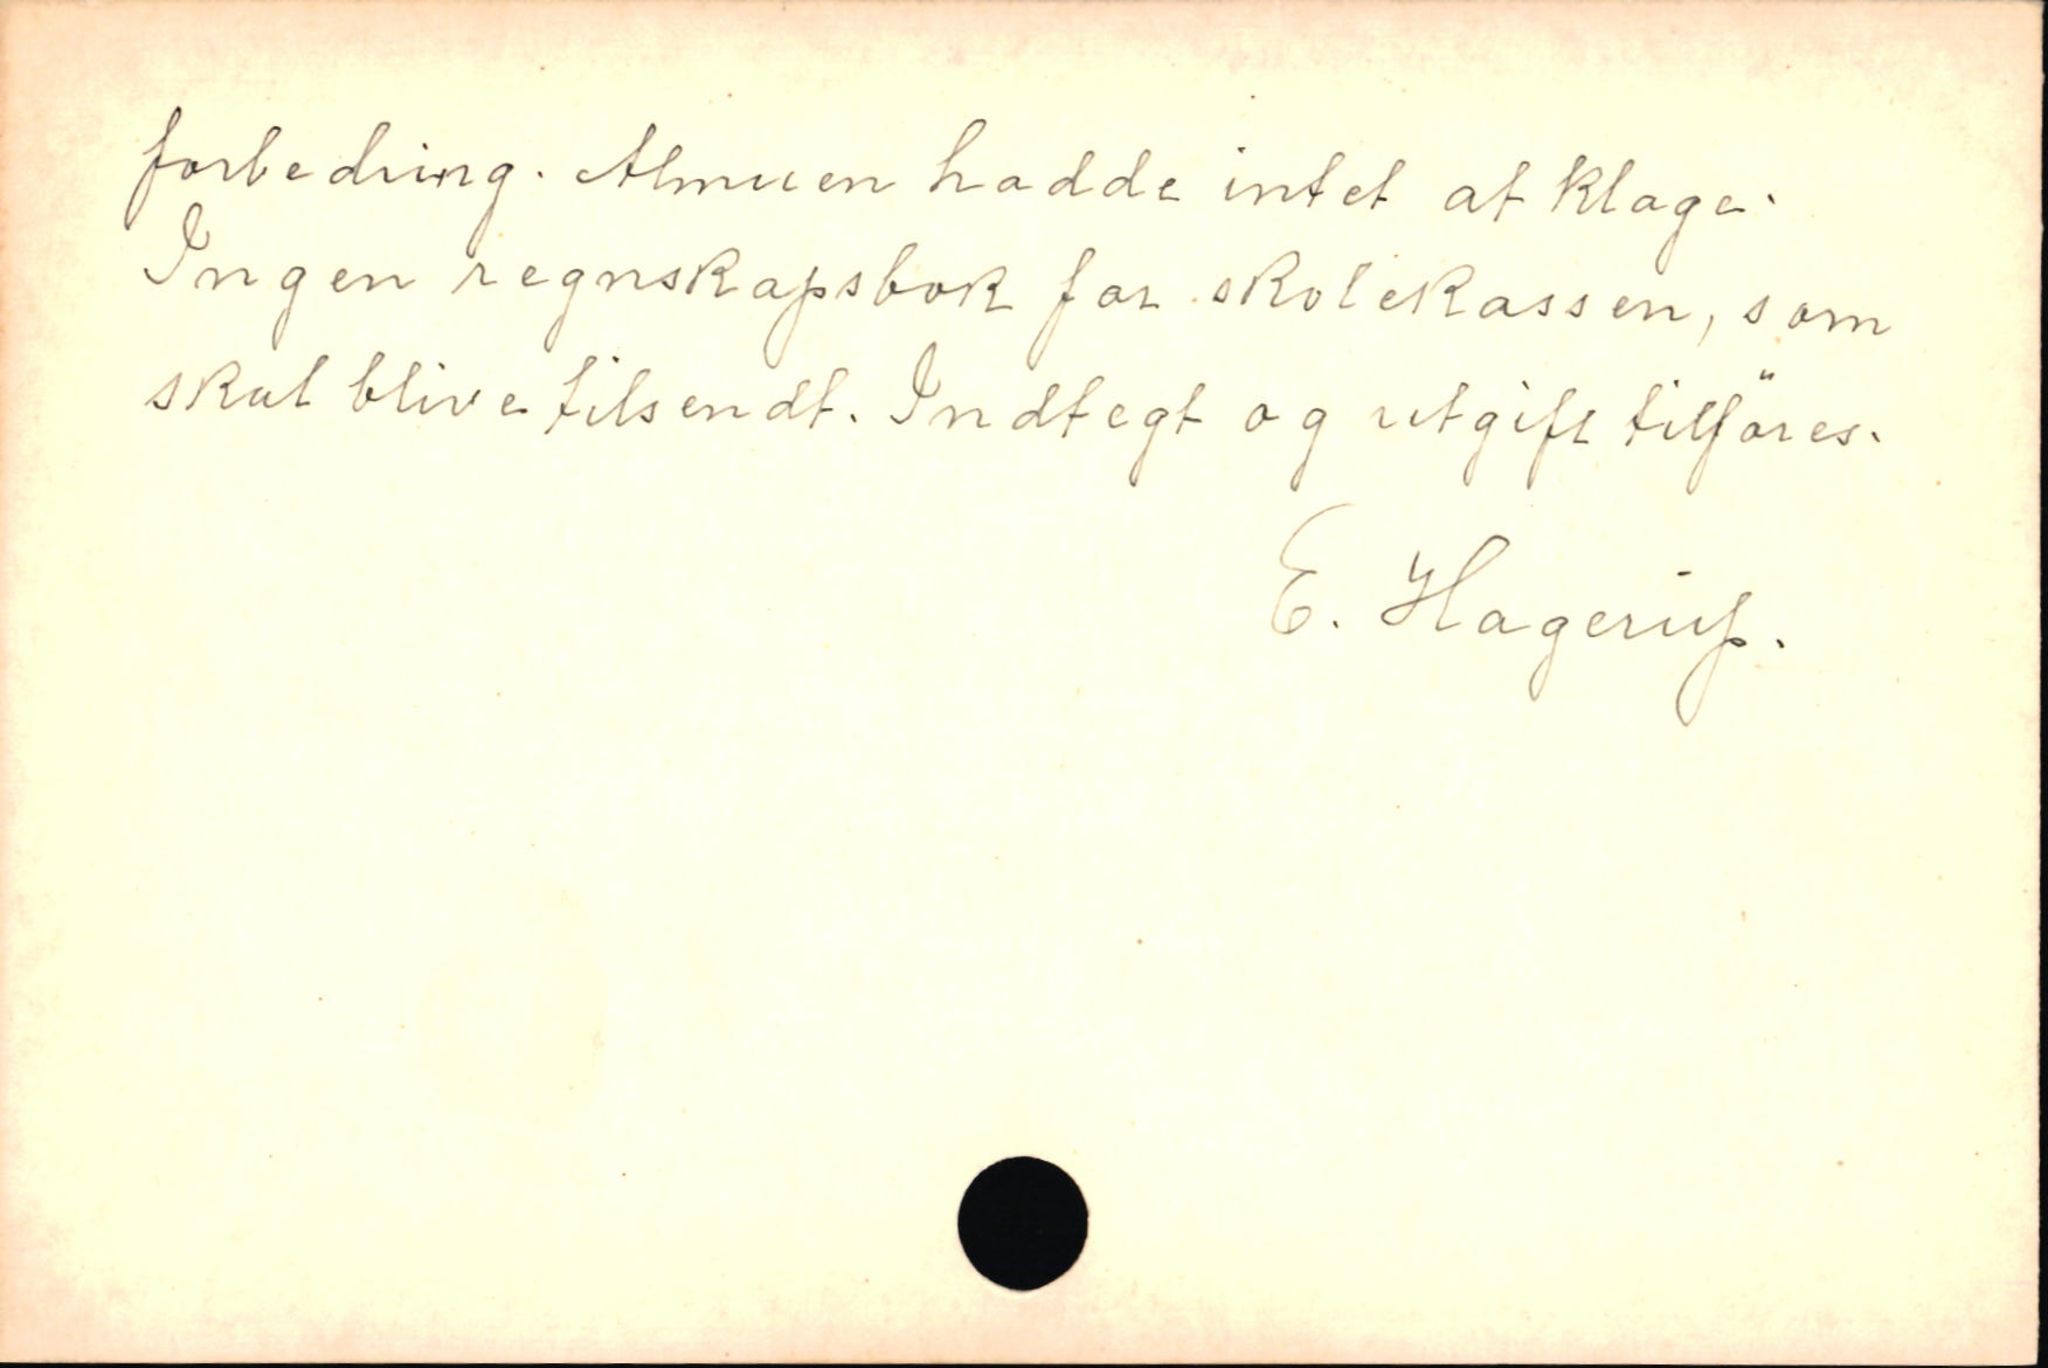 forbedring. Almuen hadde intet at klage.
Ingen regnskapsbok for skolekassen, som
skal blive tilsendt. Indtegt og utgift tilföres.
E. Hagerup.